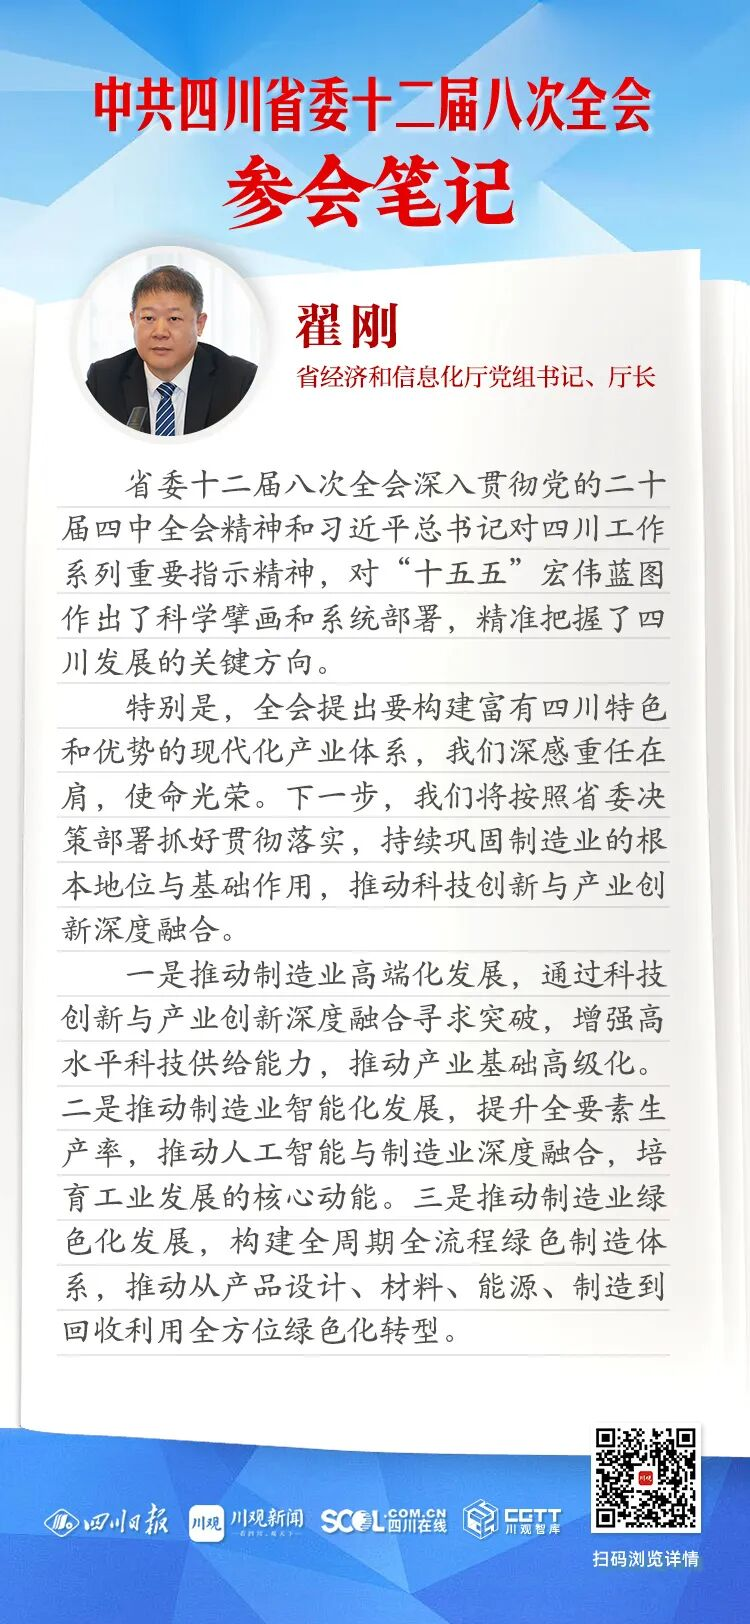 中共四川省委十二届八次全会
参会笔记
翟刚
省经济和信息化厅党组书记、厅长
省委十二届八次全会深入贯彻党的二十
届四中全会精神和习近平总书记对四川工作
系列重要指示精神，对“十五五”宏伟蓝图
作出了科学擘画和系统部署，精准把握了四
川发展的关键方向。
特别是，全会提出要构建富有四川特色
和优势的现代化产业体系，我们深感重任在
肩，使命光荣。下一步，我们将按照省委决
策部署抓好贯彻落实，持续巩固制造业的根
本地位与基础作用，推动科技创新与产业创
新深度融合。
一是推动制造业高端化发展，通过科技
创新与产业创新深度融合寻求突破，增强高
水平科技供给能力，推动产业基础高级化。
二是推动制造业智能化发展，提升全要素生
产率，推动人工智能与制造业深度融合，培
育工业发展的核心动能。三是推动制造业绿
色化发展，构建全周期全流程绿色制造体
系，推动从产品设计、材料、能源、制造到
回收利用全方位绿色化转型。
四川日报
川观
川观新闻
SCOL.COM.CN
四川在线
CGTT
川观智库
川观
扫码浏览详情